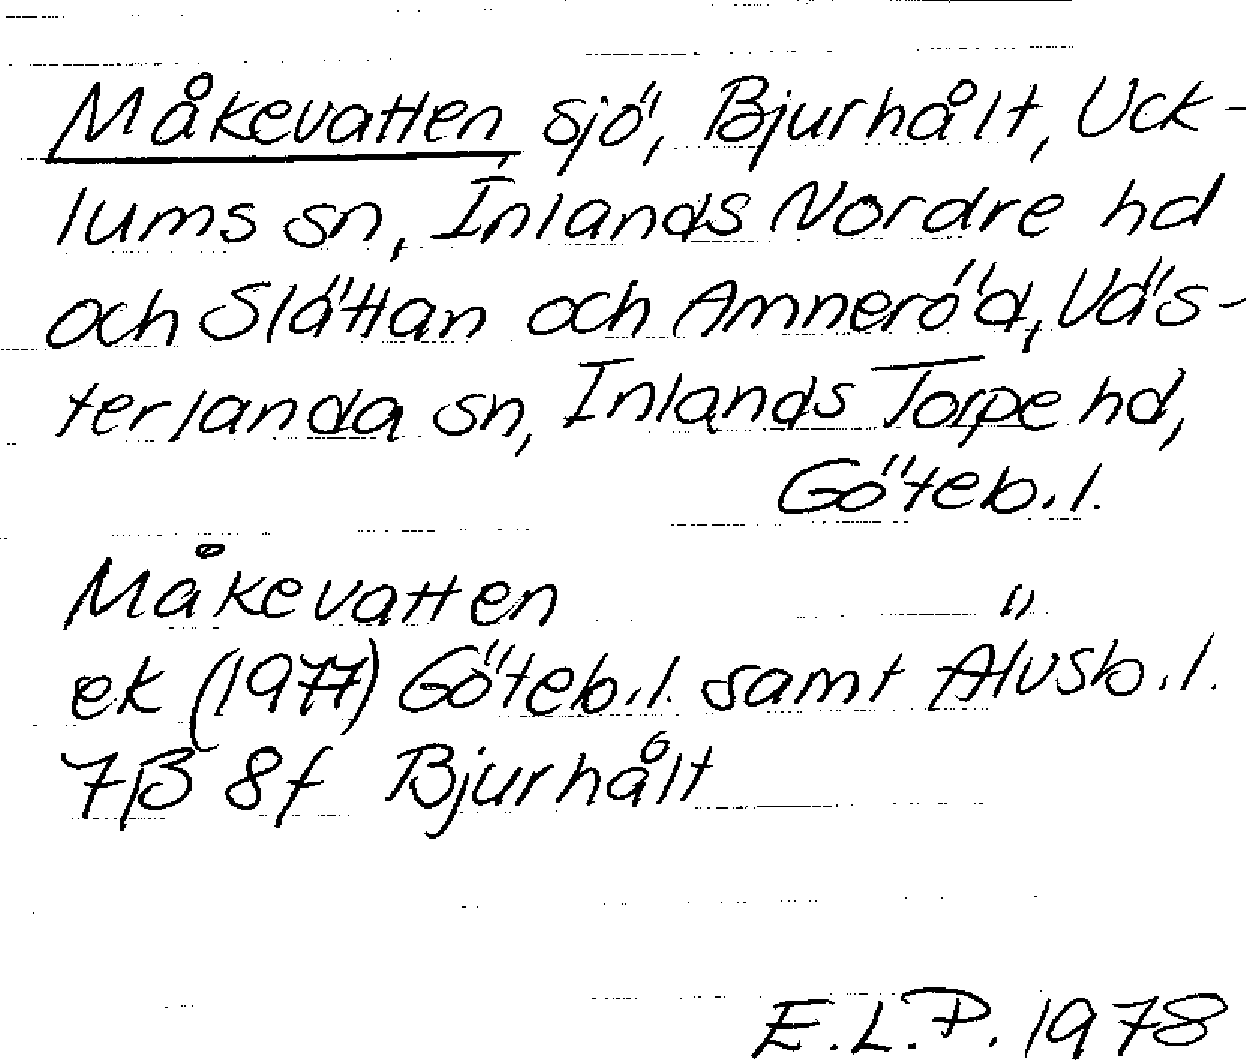 Måkevatten, sjö, Bjurhålt, Uck-
lums sn, Inlands Nordre hd
och Slättan och Amneröd, Väs-
terlanda sn, Inlands Torpe hd,
Göteb. l.
Måkevatten "
ek (1977) Göteb. l. samt Älvsb. l.
7B 8f Bjurhålt
E.L.P. 1978